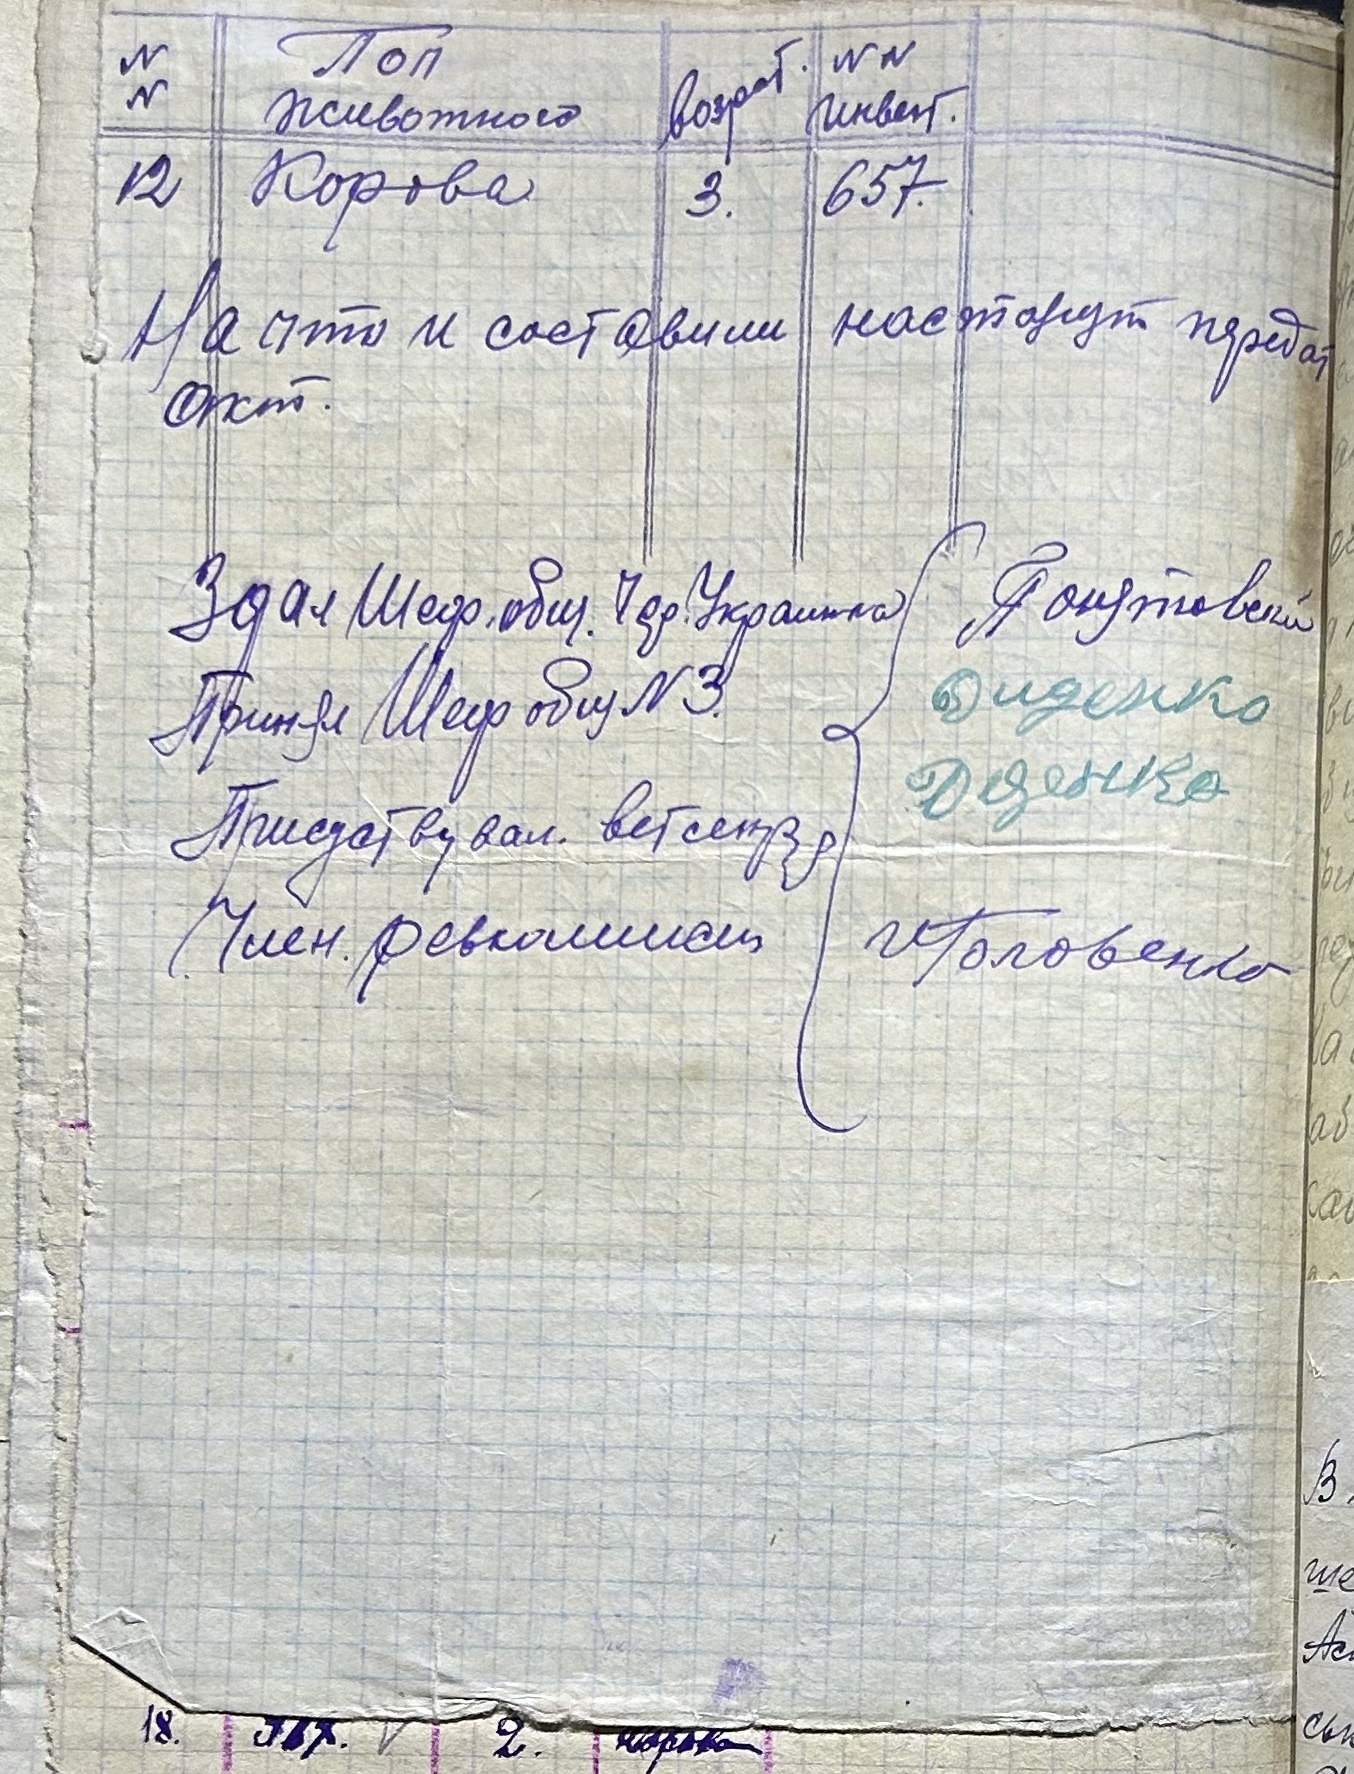 N N Пол животного возраст. N N инвент.
12 Корова 3. 657.
На что и составили настоящут передат
Акт.
Здал Шеф. общ. Чер. Украинка
Принял Шеф общ N 3.
Присуствувал. ветсенз
Член. ревкомисии
Диденко
Диденко
Головенко
18. 2. корова